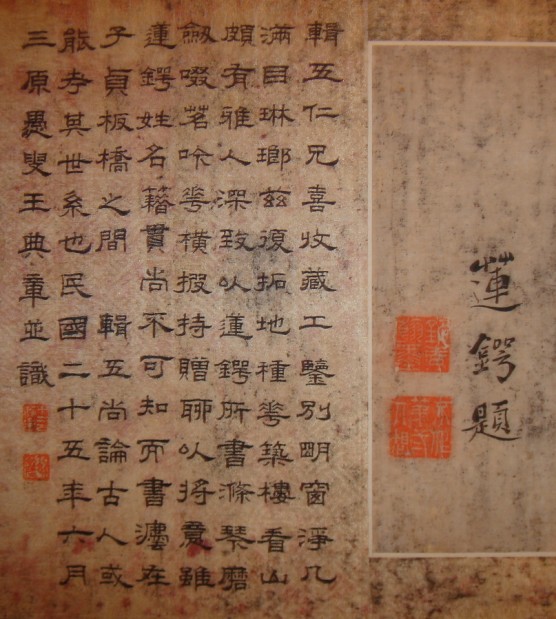 蓮鍔題
輯五仁兄喜收藏工鑒別眀窗淨几
滿目琳瑯茲復拓地種華築樓看山
頗有雅人深致以蓮鍔所書滌琴磨
劔啜茗吟華橫掇持贈聊以將意雖
蓮鍔姓名籍貫尚不可知而書灋在
子貞板橋之間 輯五尚論古人或
能考其世系也民國二十五年六月
三原愚叟王典章並識